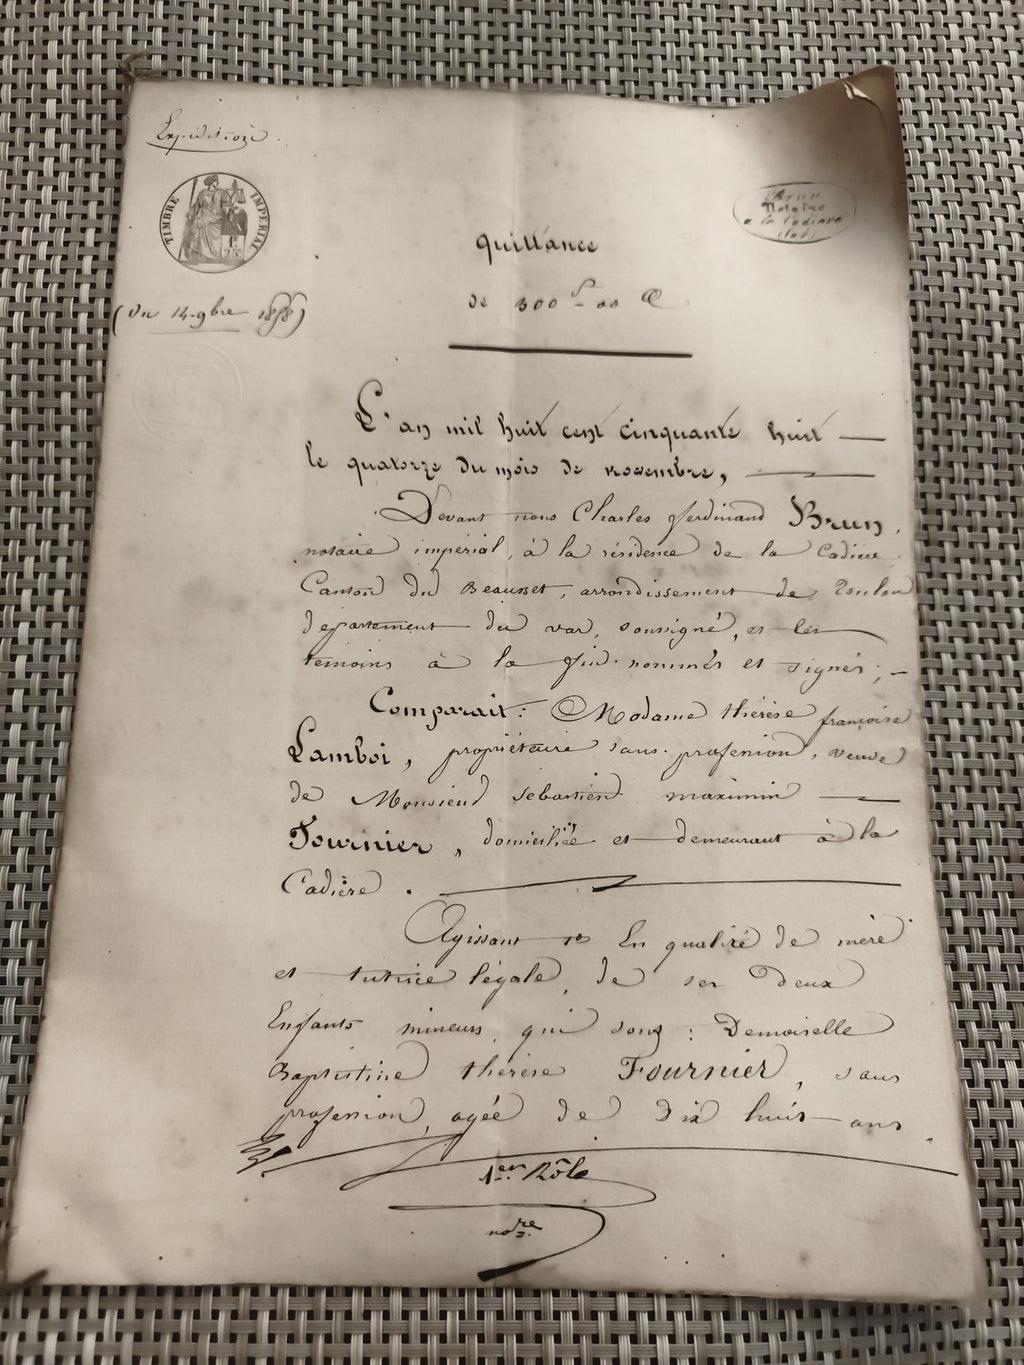 Expédition.
TIMBRE IMPERIAL
1F.
25c.
Brun
Notaire
a la Cadiere
(Var)
Quittance
de 300 f 00 c
(du 14 9bre 1858)
L'an mil huit cent cinquante huit
le quatorze du mois de novembre,
Devant nous Charles ferdinand Brun,
notaire impérial, à la résidence de la Cadière
Canton du Beausset, arrondissement de Toulon
département du var, soussigné, et les
témoins à la fin nommés et signés;
Comparait: Madame thérèse françoise
Lamboi, propriétaire sans profession, veuve
de Monsieur Sébastien maximin
Fournier, domiciliée et demeurant à la
Cadière.
Agissant 1º En qualité de mère
et tutrice légale, de ses deux
Enfants mineurs, qui sont: Demoiselle
Baptistine thérèse Fournier, sans
profession, agée de dix huit ans.
1er Rôle
nore